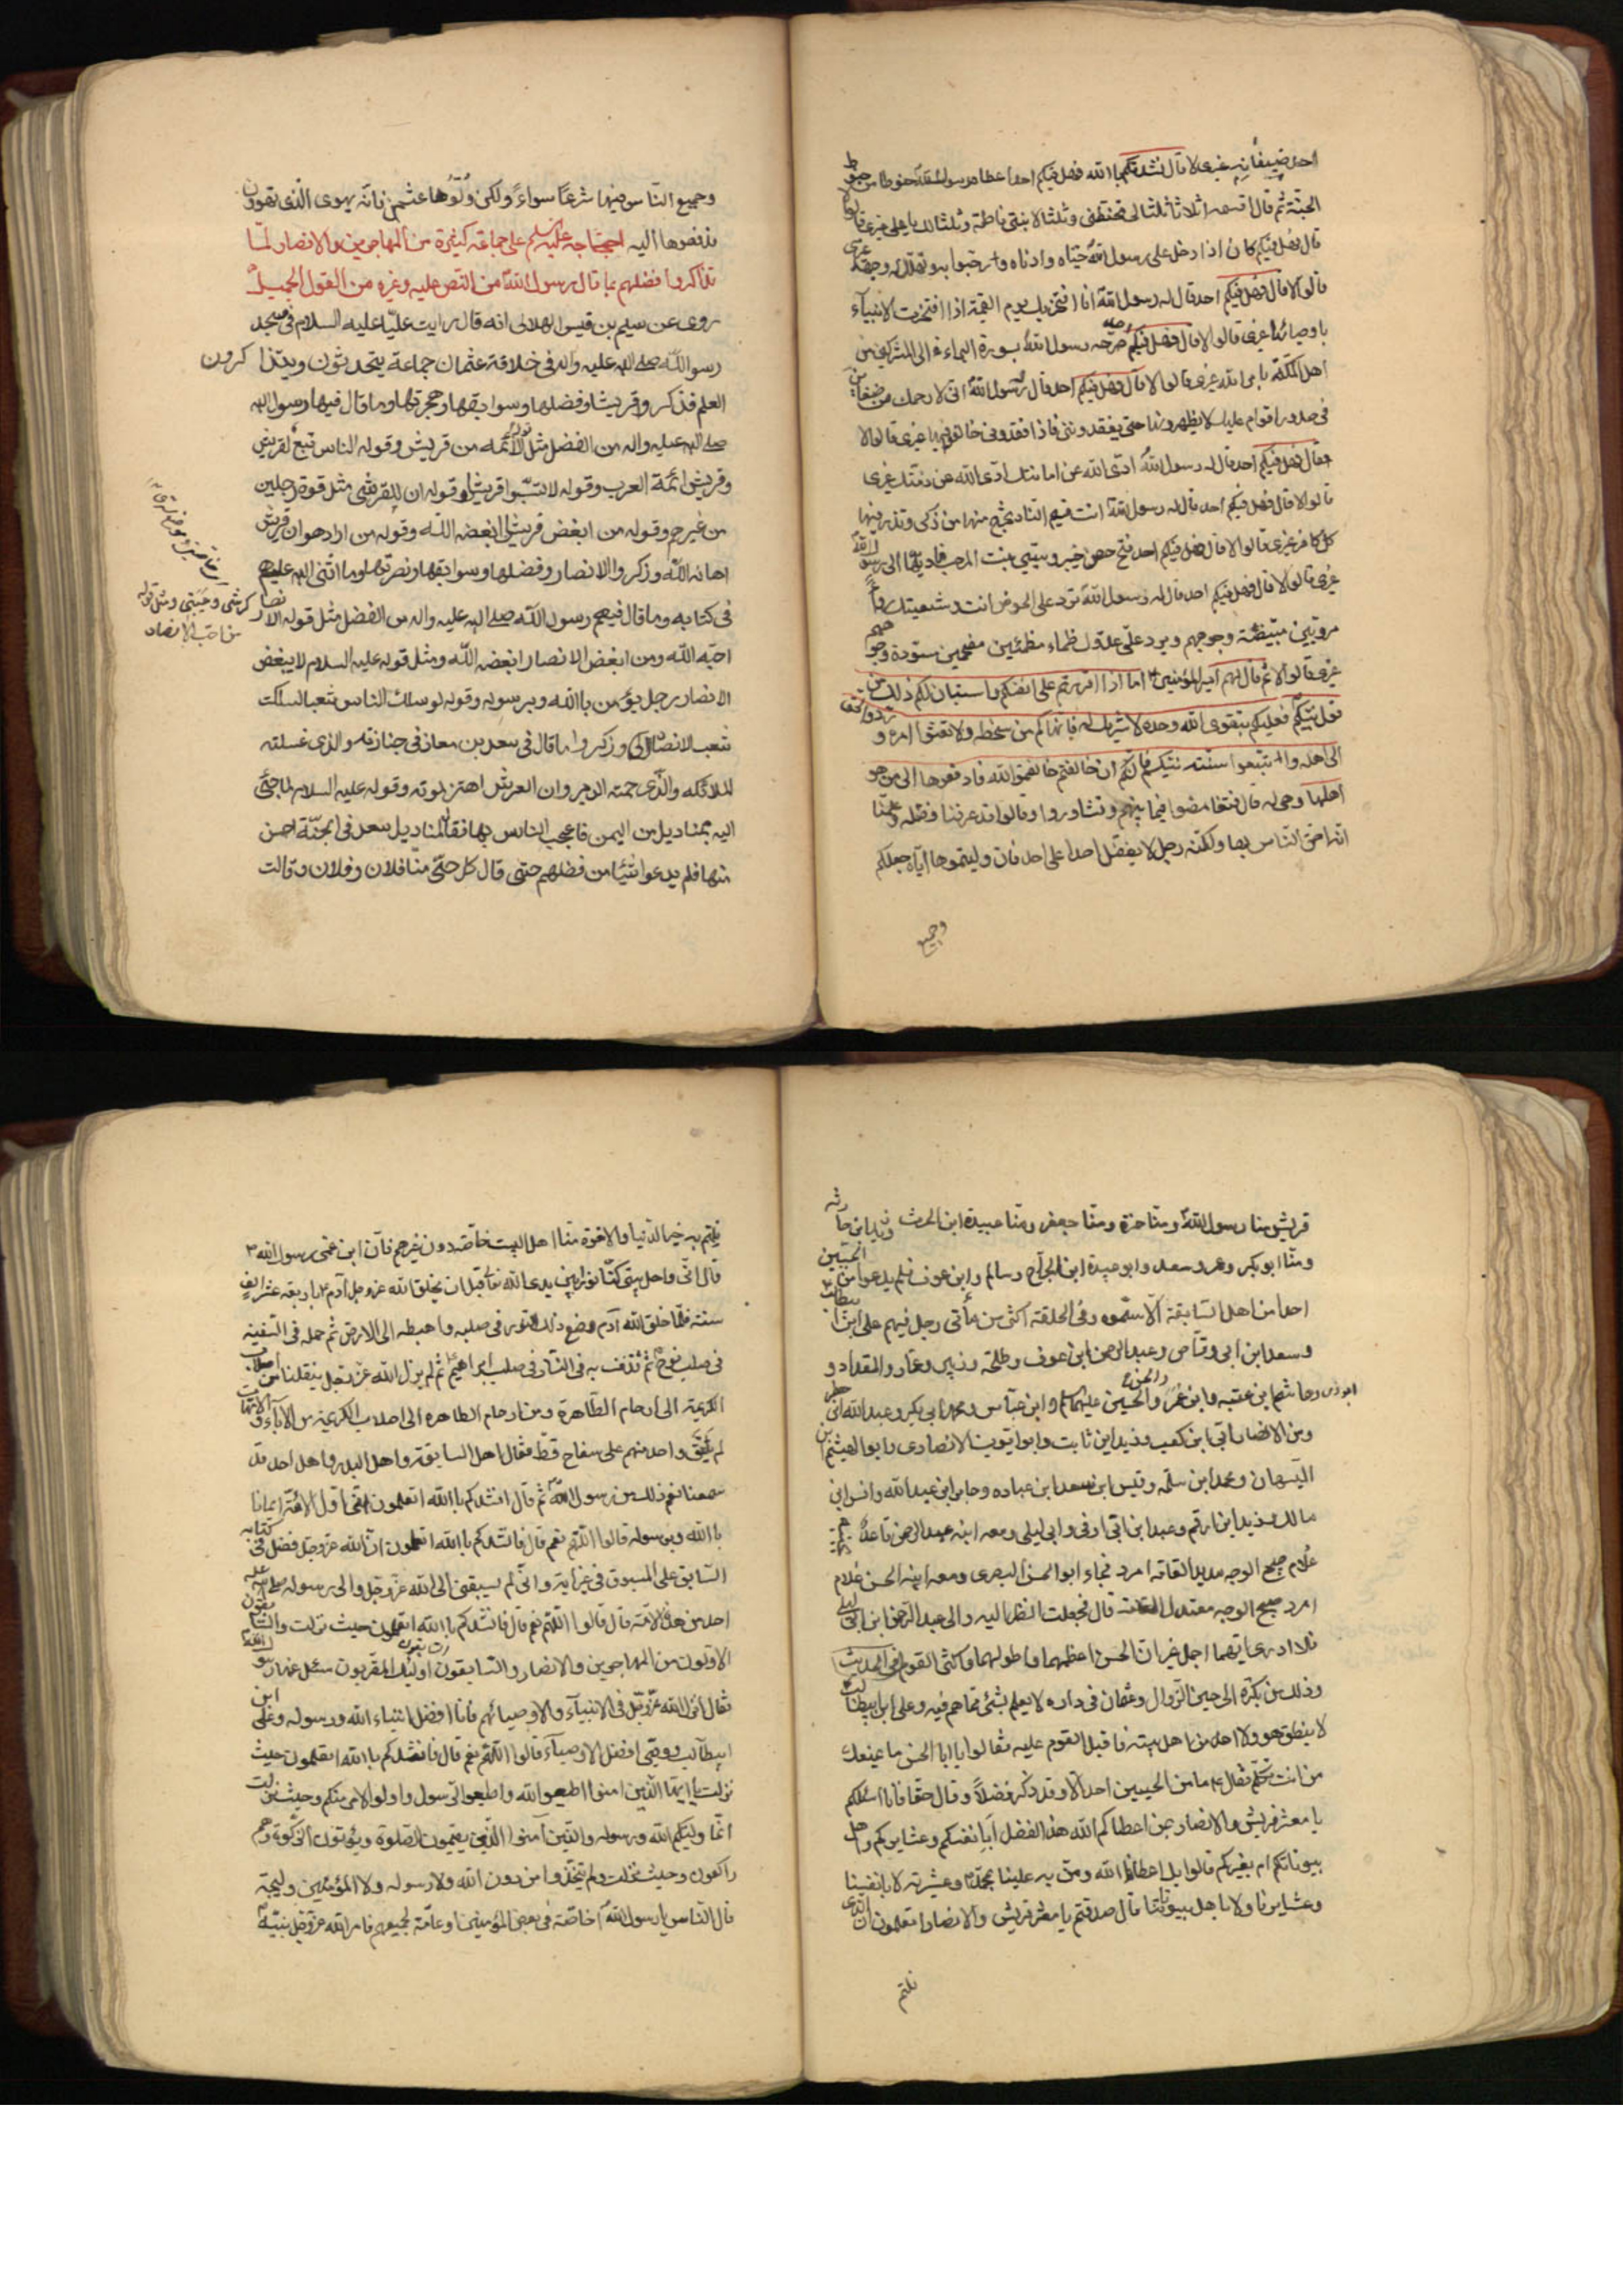 احد ضيفانه غيرى لا قال نشدتكم بالله فهل فيكم احد اعطاه رسول الله حنوطا من حنوط
الجنة ثم قال اقسمه اثلاثا ثلثا لى تحنطنى وثلثا لابنتى فاطمة وثلثا لك يا على غيرى قالوا لا
قال فهل فيكم كان اذا دخل على رسول الله حيّاه وادناه و به وتهلل له وجهه غيرى
قالوا لا قال فهل فيكم احد قال له رسول الله انا افتخر بك يوم القيمة اذا افتخرت الانبياء
باوصيائها غيرى قالوا لا قال فهل فيكم احد سرحه رسول الله بسورة البراءة الى المشركين من
اهل المكة بامر الله غيرى قالوا لا قال فهل فيكم احد قال له رسول الله انى لارحمك من ضغاين
فى صدور اقوام عليك لا يظهرونها حتى يفقدونى فاذا فقدونى خالفوا فيها غيرى قالوا لا
فقال فهل فيكم احد قال له رسول الله ادّى الله عن امانتك ادّى الله عن ذمّتك غيرى
قالوا لا قال فهل فيكم احد قال له رسول الله انت قسيم النار تخرج منها من زكى وتذر فيها
كل كافر غيرى قالوا لا قال فهل فيكم احد فتح حصن خيبر وسبى بنت المرحب فاديها الى رسول الله
غيرى قالوا لا قال فهل فيكم احد قال له رسول الله ترد على الحوض انت وشيعتك رواء
مرويين مبيضّة وجوههم ويرد علىّ عدوّك ظماء مظمئين مقمحين مسودة وجوههم
غيرى قالوا لا ثم قال لهم امير المؤمنين ع اما اذا اقررتم على انفسكم واستبان لكم ذلك من
قول نبيّكم فعليكم بتقوى الله وحده لا شريك له فانهاكم من سخطه ولا تعصوا امره وردوا الحق
الى اهله واتبعوا سنّة نبيّكم فانكم ان خالفتم خالفتم الله فادفعوها الى من هو
اهلها وهى له قال فتغامضوا فيما بينهم وتشاوروا وقالوا قد عرفنا فضله وعلمنا
انه احق الناس بها ولكنّه رجل لا يفضل احدا على احد فان وليتموها اياه جعلكم
وجميع
وجميع الناس فيها شرعًا سواءً ولكن ولّوها عثمن فانّه يهوى الّذى تهوون
فدفعوها اليه احتجاجه عليه السلم على جماعة كثيرة من المهاجرين والانصار لمّا
تذاكروا فضلهم بما قال رسول الله من النّص عليه وغيره من القول الجميل
روى عن سليم بن قيس الهلالى انه قال رايت عليّا عليه السلام فى مسجد
رسول الله صلى الله عليه واله فى خلافة عثمان جماعة يتحدثون ويتذاكرون
العلم فذكروا قريشا وفضلها وسوابقها وهجرتها وما قال فيها رسول الله
صلى الله عليه واله من الفضل مثل قوله الائمه من قريش وقوله الناس تبع لقريش
وقريش ائمة العرب وقوله لا تسبّوا قريشا وقوله ان للقرشى مثل قوة رجلين
من غيرهم وقوله من ابغض قريشا ابغضه اللّه وقوله من اراد هوان قريش
اهانه اللّه وذكروا الانصار وفضلها وسوابقها ونصرتها وما اثنى الله عليهم
فى كتابه وما قال فيهم رسول اللّه صلى الله عليه واله من الفضل مثل قوله الانصار كرشى وعيبتى ومثل قوله
من احب الانصار
احبّه اللّه ومن ابغض الانصار ابغضه اللّه ومثل قوله عليه السلام لا يبغض
الانصار رجل يؤمن بالله وبرسوله وقوله لو سلك الناس شعبا لسلكت
شعب الانصار وذكروا ما قال فى سعد بن معاز فى جنازته والذى غسلته
الملائكة والّذى حمته الدبر وان العرش اهتز لموته وقوله عليه السلام لما جئ
اليه بمناديل من اليمن فاعجب الناس بها فقال لمناديل سعد فى الجنّة احسن
منها فلم يدعوا شيئا من فضلهم حتى قال كل حىّ منّا فلان وفلان وقالت
قريش منا رسول الله ومنّا حمزة ومنّا جعفر ومنّا عبيدة ابن الحرث وزيد ابن حارثه
ومنّا ابو بكر وعمر وسعد وابو عبيدة ابن الجراح وسالم وابن عوف فلم يدعوا من الحيّين
احدا من اهل السّابقة الّا سمّوه وفى الحلقة اكثر من مأتى رجل فيهم على ابن ابيطالب
وسعد ابن ابى وقاص وعبد الرحمن ابن عوف وطلحة وزبير وعمار والمقداد و
ابو ذر وهاشم ابن عتبه وابن عمر والحسن والحسين عليهما السلم وابن عباس ومحمد ابى بكر وعبد الله ابن جعفر
ومن الانصار ابى ابن كعب وزيد ابن ثابت وابو ايوب الانصارى وابو الهيثم ابن
التيهان ومحمد ابن سلمه وقيس ابن سعد ابن عباده وجابر ابن عبد الله وانس ابن
مالك وزيد ابن ارقم وعبد ابن ابى اوفى وابى ليلى ومعه ابنه عبد الرحمن قاعد بجنبه
غلام صبيح الوجه مديد القامة امرد فجاء ابو الحسن البصرى ومعه ابنه الحسن غلام
امرد صبيح الوجه معتدل القامت قال فجعلت انظر اليه والى عبد الرحمن ابن ابى ليلى
فلا ادرى ايّهما اجمل غير ان الحسن اعظمهما واطولهما واكثر القوم فى الحديث
وذلك من بكرة الى حين الزوال وعثمان فى داره لا يعلم بشئ ممّا هم فيه وعلى ابن ابيطالب
لا ينطق هو ولا احد من اهل بيته فاقبل القوم عليه فقالوا يا ابا الحسن ما يمنعك
من ان تتكلّم فقال ع ما من الحيين احد الا وقد ذكر فضلاً وقال حقا فانا اسئلكم
يا معشر قريش والانصار بمن اعطاكم الله هذا الفضل أبانفسكم وعشايركم واهل
بيوتاتكم ام بغيركم قالوا بل اعطانا الله ومنّ به علينا بمحمّد وعشيرته لا بانفسنا
وعشايرنا ولا باهل بيوتاتنا قال صدقتم يا معشر قريش والانصار اتعلمون ان الذى
نلتم
نلتم به خير الدنيا والاخرة منّا اهل البيت خاصّة دون غيرهم فانّ ابن عمى رسول الله
قال انّى واهل بيتى كنّا نورا بين يدى الله تعالى قبل ان يخلق الله عزوجل آدم باربعة عشر الف
سنة فلمّا خلق الله آدم وضع ذلك النّور فى صلبه واهبطه الى الارض ثم حمله فى السّفينه
فى صلب نوح ثم قذف به فى النّار فى صلب ابراهيم ثم لم يزل الله عز وجل ينقلنا من اصلاب
الكريمة الى ارحام الطّاهرة ومن ارحام الطاهره الى اصلاب الكريمة من الآباء والامّهات
لم يلق واحد منهم على سفاح قطّ فقال اهل السابقة واهل البدر واهل احد قد
سمعنا نعم ذلك من رسول الله ثم قال انشدكم بالله اتعلمون انّى اول الامّة ايمانا
بالله وبرسوله قالوا اللّهم نعم قال فانشدكم بالله اتعلمون انّ الله عزوجل فضل فى كتابه
السّابق على المسبوق فى غير اية وانّى لم يسبقنى الى الله عزوجل والى رسوله صلى الله عليه
احد من هذه الامّة قال قالوا اللّهم نعم قال فانشدكم بالله اتعلمون حيث نزلت والسّابقون
الاوّلون من المهاجرين والانصار والسّابقون السابقون اولئك المقرّبون سئل عنها رسول الله
فقال انزل الله عزوجل فى الانبيآء والاوصيائهم فانا افضل انبياء الله ورسوله وعلى ابن
ابيطالب وصيّى افضل الاوصيآء قالوا اللهم نعم قال فانشدكم بالله اتعلمون حيث
نزلت يا ايّها الّذين امنوا اطيعوا الله واطيعوا الرّسول واولوا الامر منكم وحيث نزلت
انّما وليّكم الله ورسوله والذين آمنوا الّذين يقيمون الصّلوة ويؤتون الزّكوة وهم
راكعون وحيث نزلت ولم يتّخذوا من دون الله ولا رسوله ولا المؤمنين وليجة
قال النّاس يا رسول الله خاصّة فى بعض المؤمنين او عامّة لجميعهم فامر الله عزوجل نبيّه